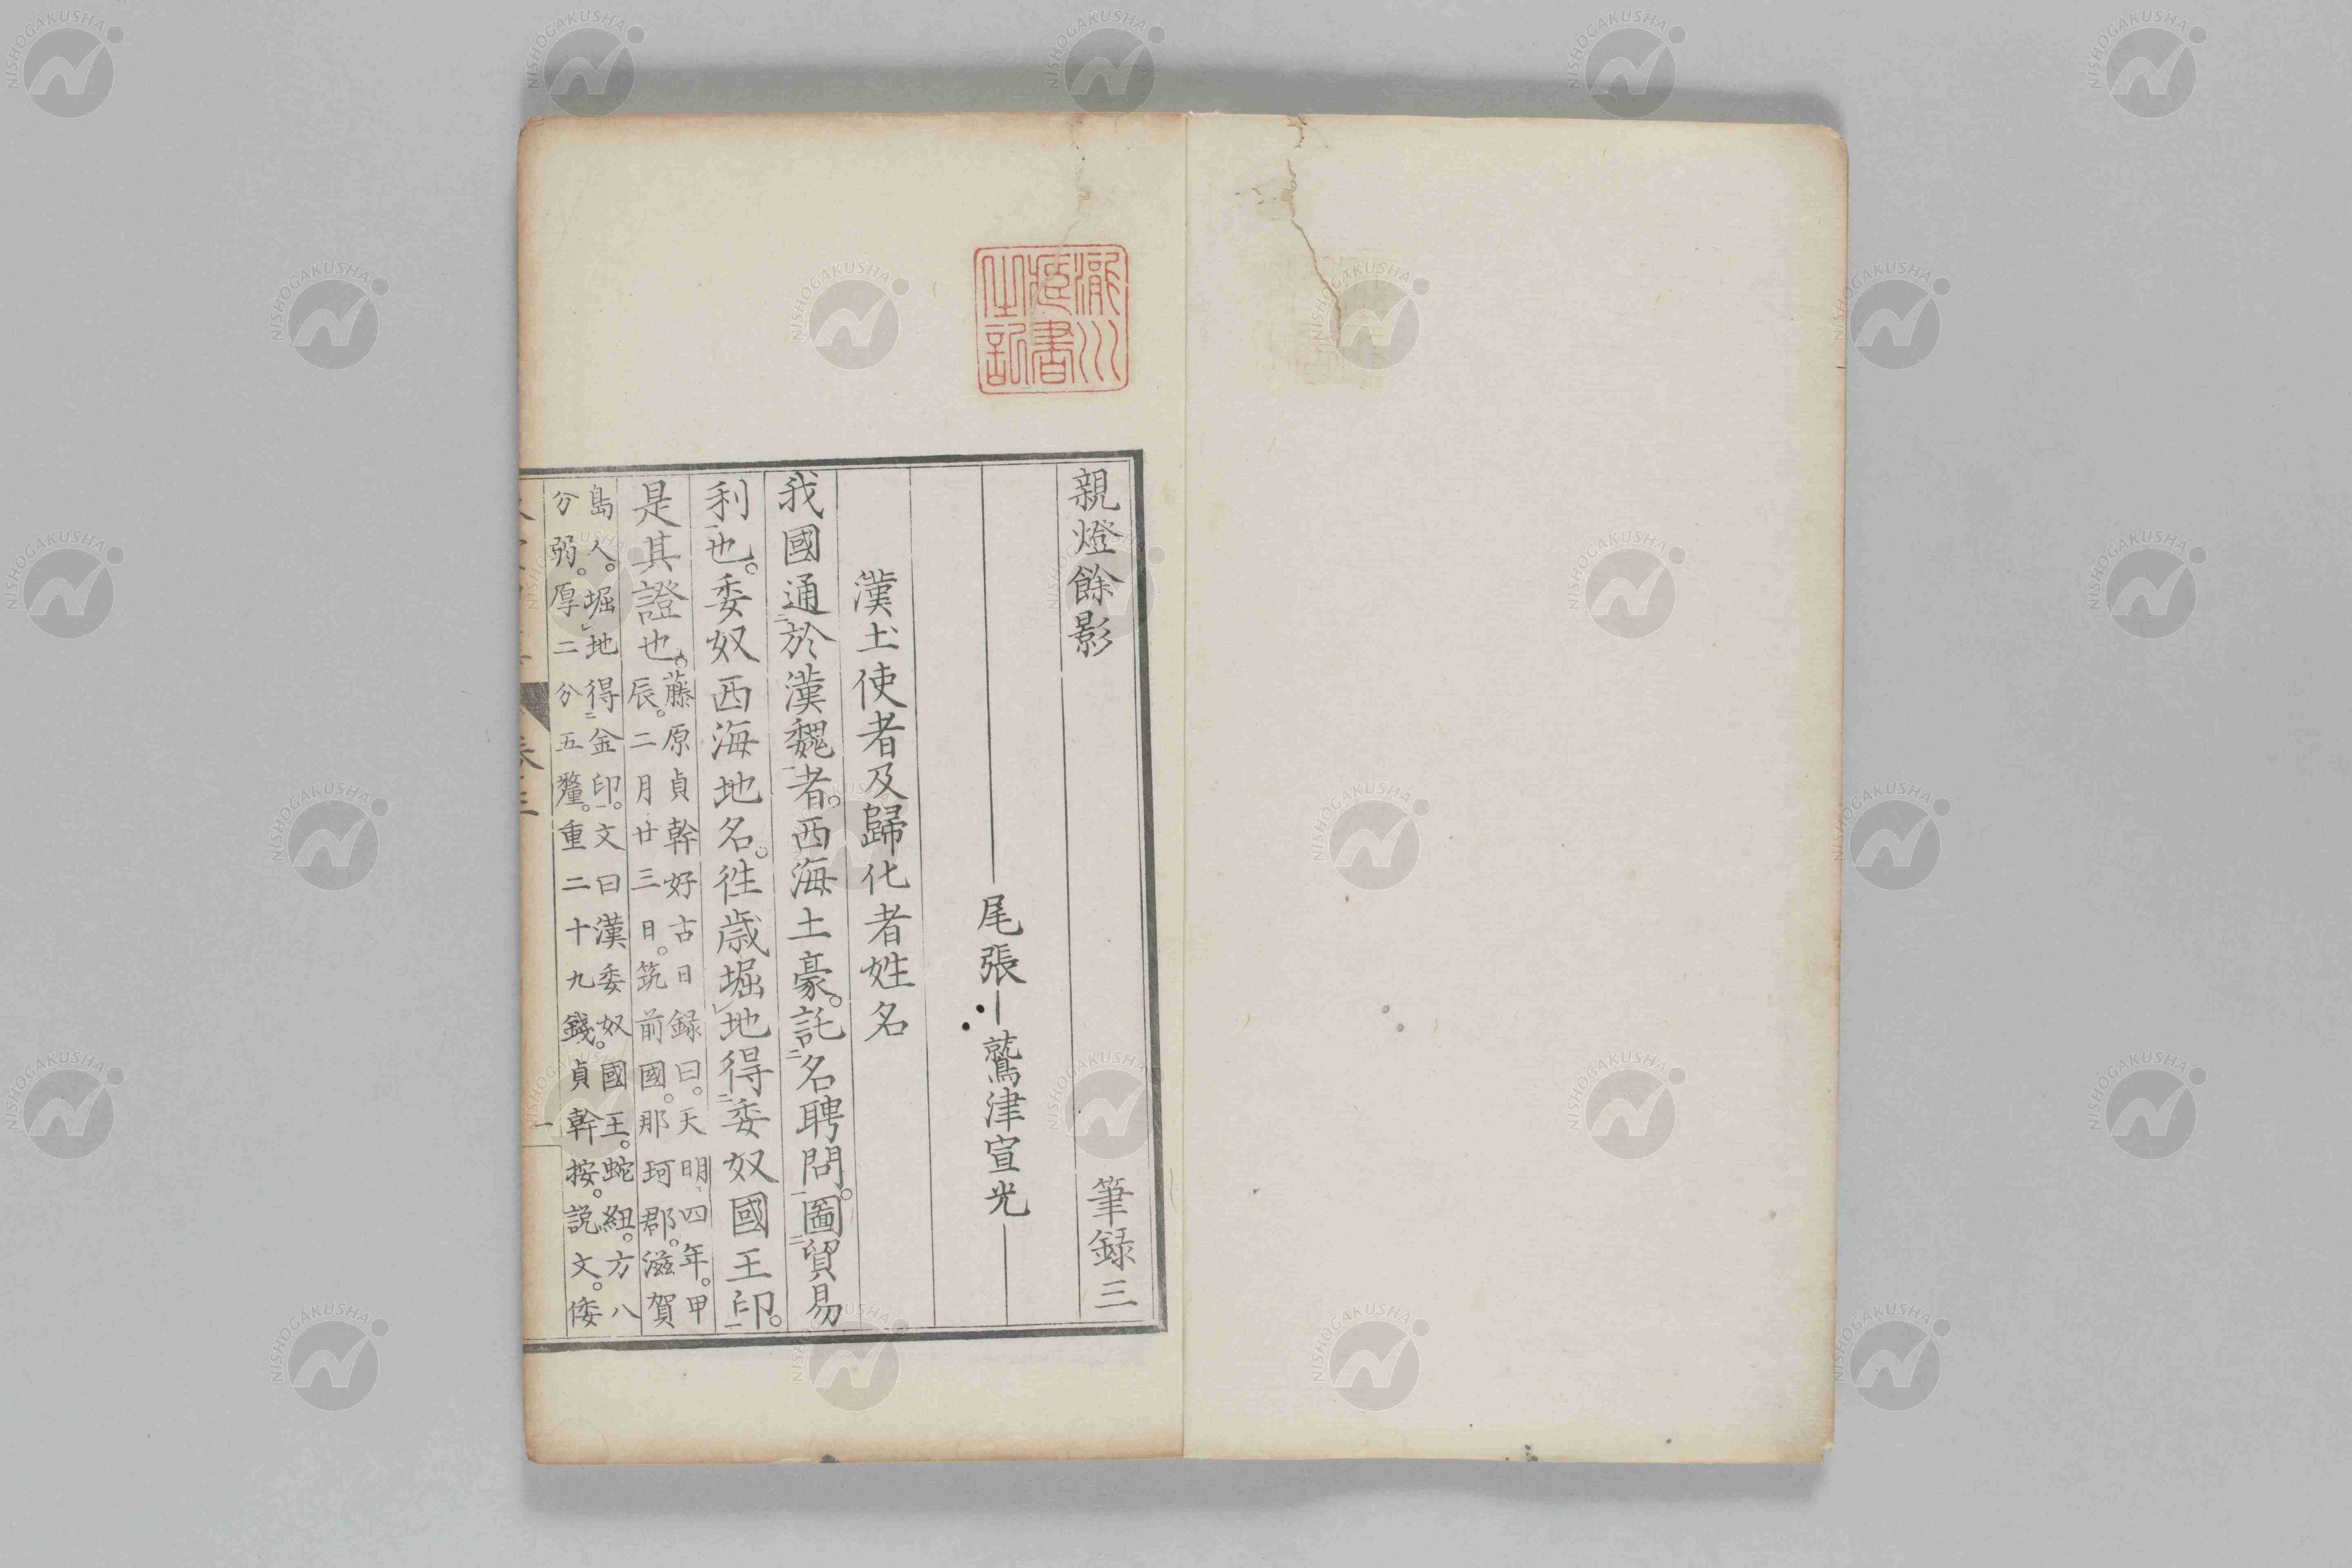 親燈餘影　筆録三
尾張　鷲津宣光
漢土使者及歸化者姓名
我國通於漢魏者。西海土豪。託名聘問。圖貿易
利也。委奴西海地名。徃歳堀地得委奴國王印。
是其證也。藤原貞幹好古日録曰。天明四年。甲
辰。二月廿三日。筑前國。那珂郡。滋賀
島人。堀地得金印。文曰漢委奴國王。蛇紐。方八
分弱。厚二分五釐。重二十九錢。貞幹按。説文。倭
瀧川
臧書
之記
卷三
一
NISHOGAKUSHA